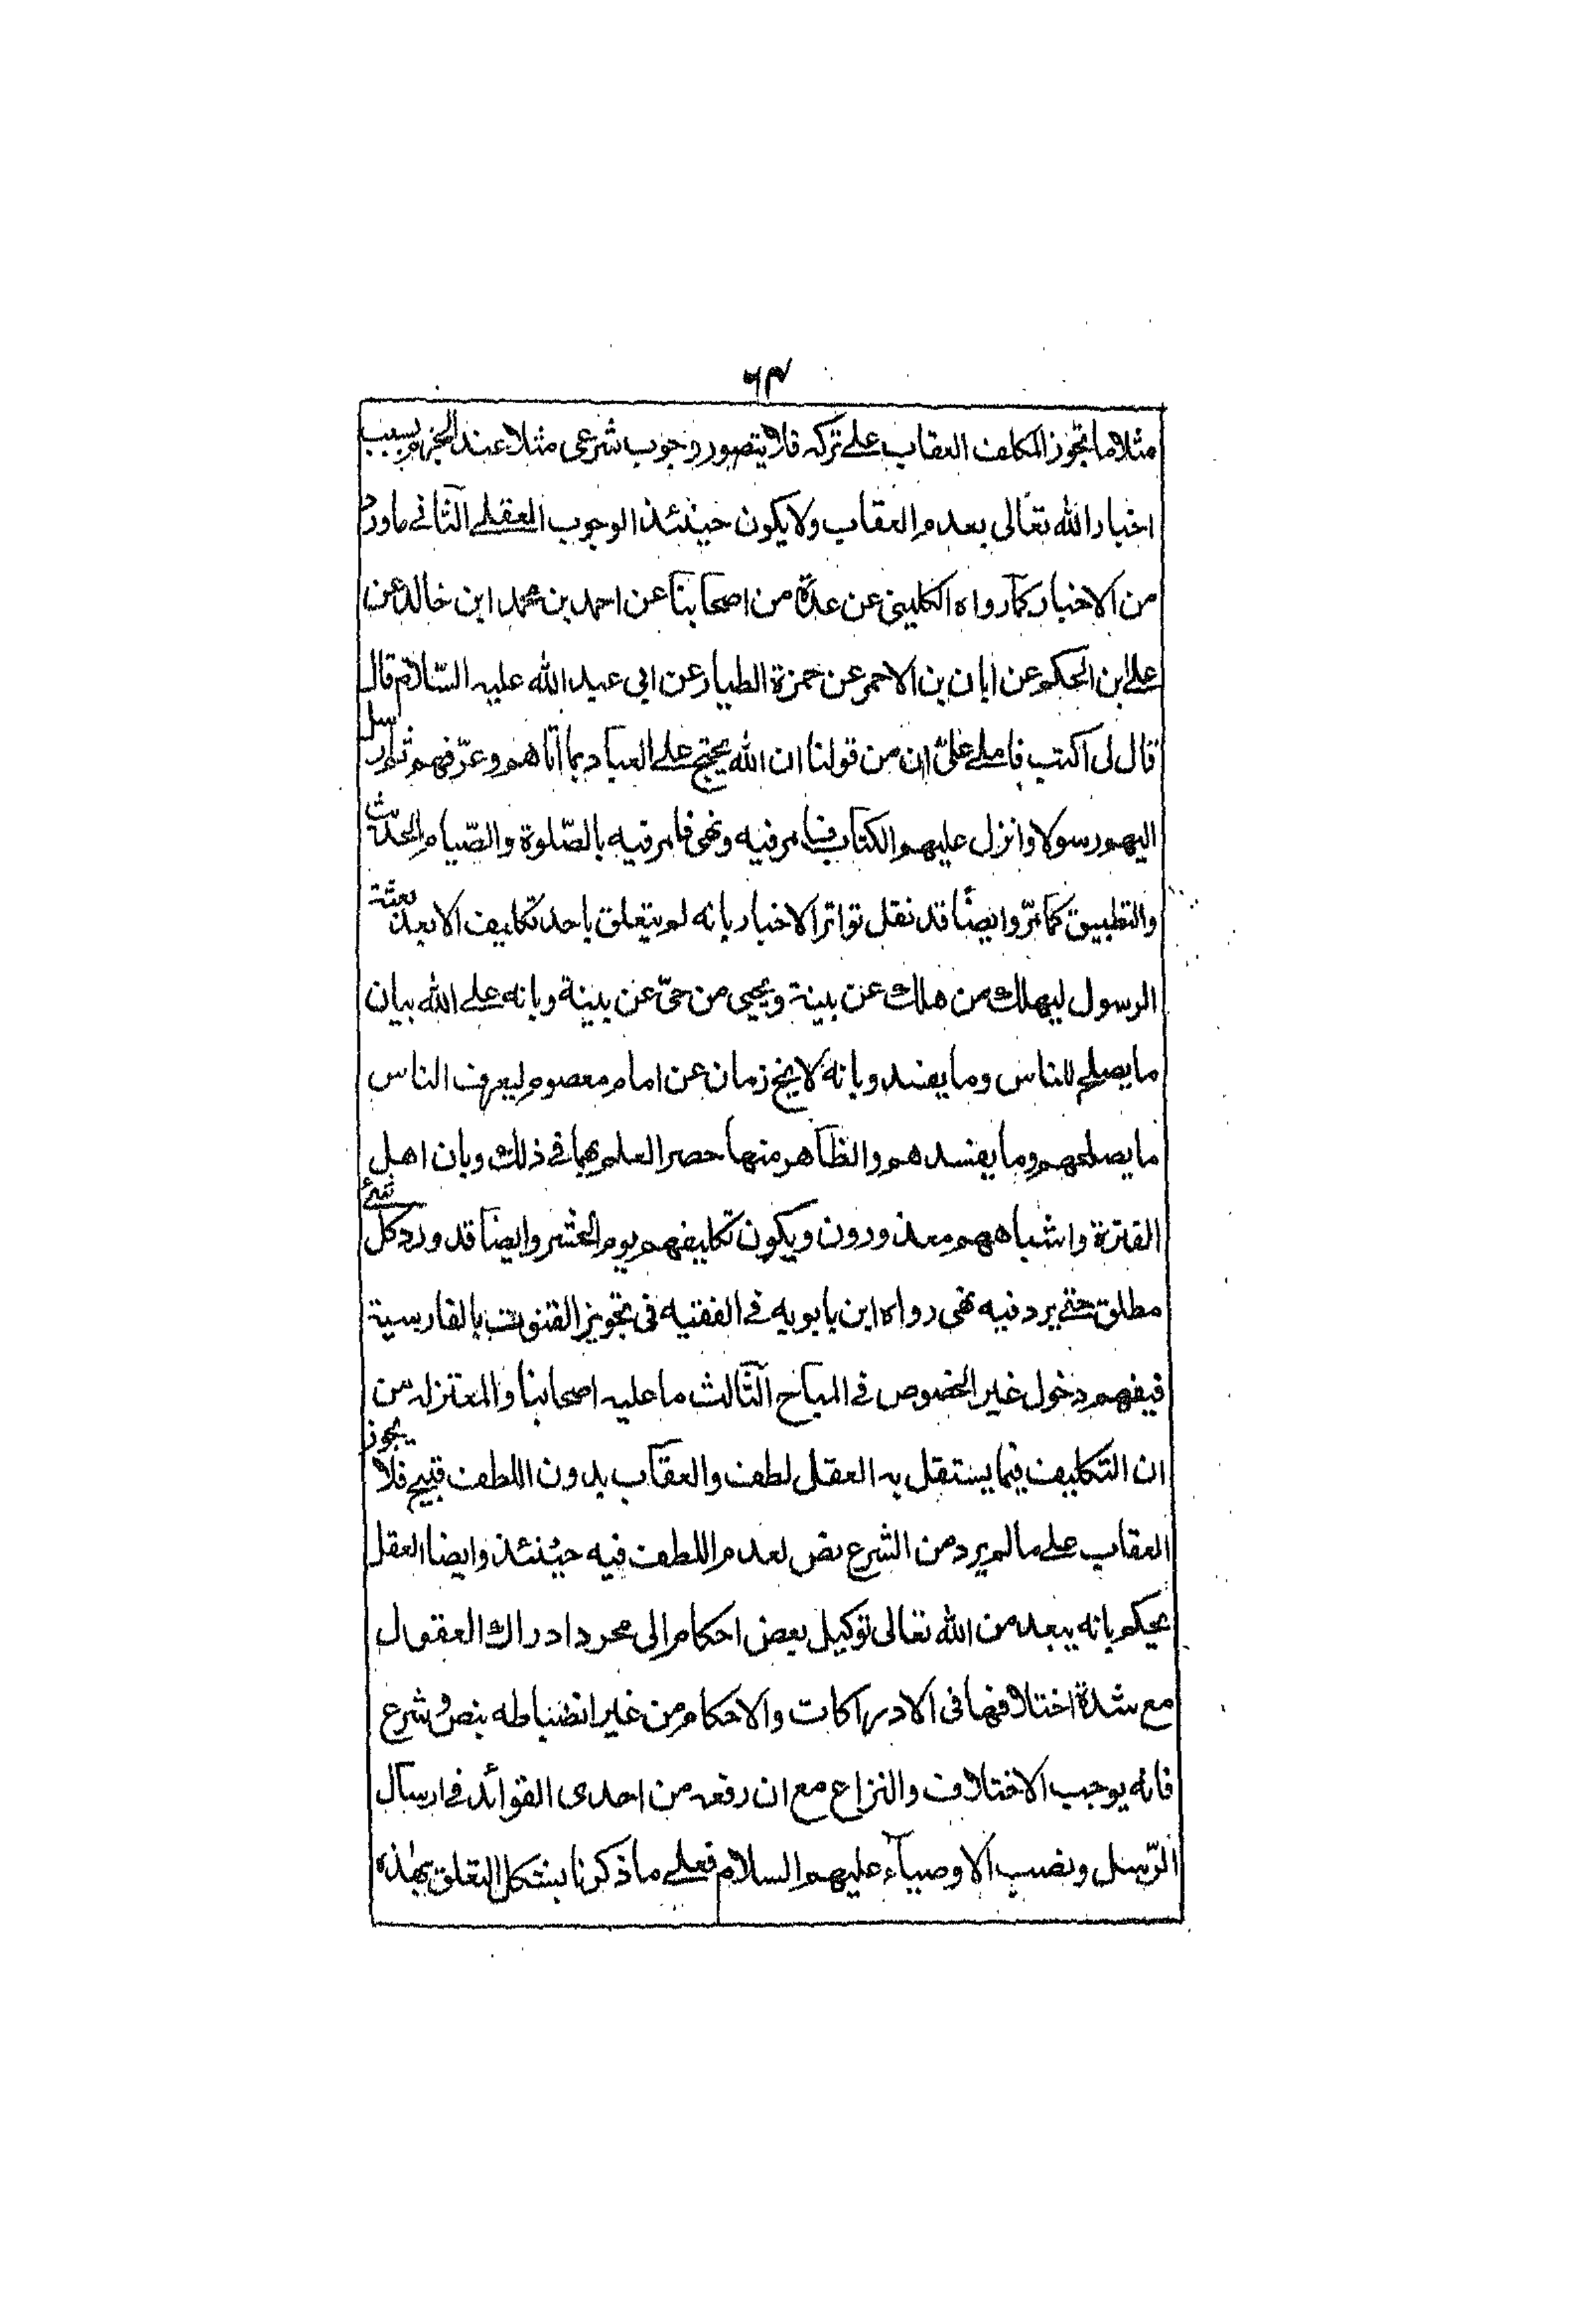 ٦٣
مثلا ما تجوز المكلف العقاب على تركه فلا يتصور وجوب شرعى مثلا عند الجزم بسبب
اخبار الله تعالى بعدم العقاب ولا يكون حينئذ الوجوب العقلى الثانى ما ورد
من الاخبار كما رواه الكلينى عن عدة من اصحابنا عن احمد بن محمد ابن خالد عن
على ابن الحكم عن ابان بن الاحمر عن حمزة الطيار عن ابى عبد الله عليه السلام قال
قال لى اكتب فاملى علىّ ان من قولنا ان الله يحتج على العباد بما اتاهم وعرّفهم ثم ارسل
اليهم رسولا وانزل عليهم الكتاب فامر فيه ونهى فامر فيه بالصّلوة والصّيام الحديث
والتطبيق كما مرّ وايضًا قد نقل تواتر الاخبار بانه لم يتعلق باحد تكليف الا بعد بعثة
الرسول ليهلك من هلك عن بينة ويحيى من حىّ عن بينة وبانه على الله بيان
ما يصلح للناس وما يفسد وبانه لا يخ زمان عن امام معصوم ليعرف الناس
ما يصلحهم وما يفسدهم والظاهر منها حصر العلم بهما فى ذلك وبان اهل
الفترة واشباههم معذورون ويكون تكليفهم يوم الحشر وايضا قد ورد كل شئ
مطلق حتى يرد فيه نهى رواه ابن بابويه فى الفقيه فى تجويز القنوت بالفارسية
فيفهم دخول غير المخصوص فى المباح الثالث ما عليه اصحابنا والمعتزله من
ان التكليف فيما يستقل به العقل لطف والعقاب بدون اللطف قبيح فلا يجوز
العقاب على ما لم يرد من الشرع نص لعدم اللطف فيه حينئذ وايضا العقل
يحكم بانه يبعد من الله تعالى توكيل بعض احكام الى مجرد ادراك العقول
مع شدة اختلافها فى الادراكات والاحكام من غير انضباطه بنص وشرع
فانه يوجب الاختلاف والنزاع مع ان رفعه من احدى الفوائد فى ارسال
الرّسل ونصب الاوصياء عليهم السلام فعلى ما ذكرنا يشكل التعلق بهذه